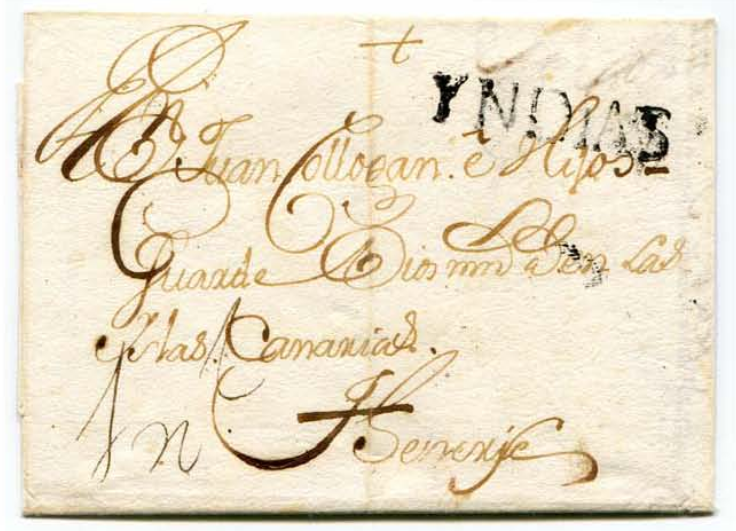 +
YNDIAS
Dn Juan Collogan. è Hijos
Guarde Dios ms. As. en Las
Yslas Canarias.
Thenerife